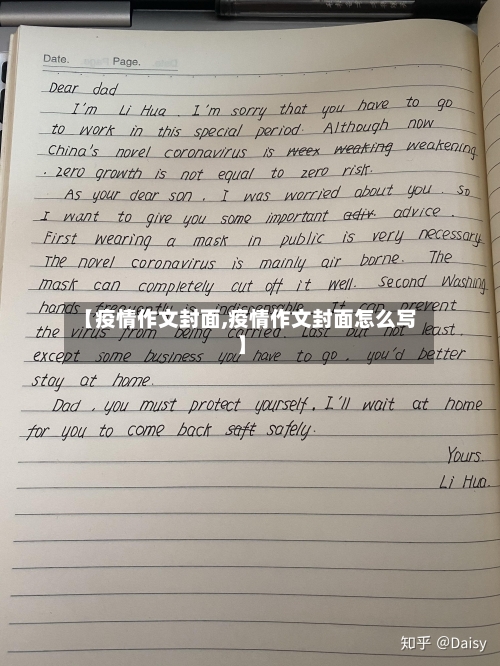 Date.
Page.
Dear dad
I'm Li Hua. I'm sorry that you have to go
to work in this special period. Although now
China's novel coronavirus is weex weaking weakening
. zero growth is not equal to zero risk.
As your dear son, I was worried about you. So
I want to give you some important adiv. advice.
First wearing a mask in public is very necessary
The novel coronavirus is mainly air borne. The
mask can completely cut off it well. Second Washing
hands frequently is indispensable. It can prevent
【疫情作文封面,疫情作文封面怎么写
】
the virus from being carried. Last but not least.
except some business you have to go, you'd better
stay at home.
Dad, you must protect yourself, I'll wait at home
for you to come back saft safely.
Yours.
Li Hua.
知乎 @Daisy